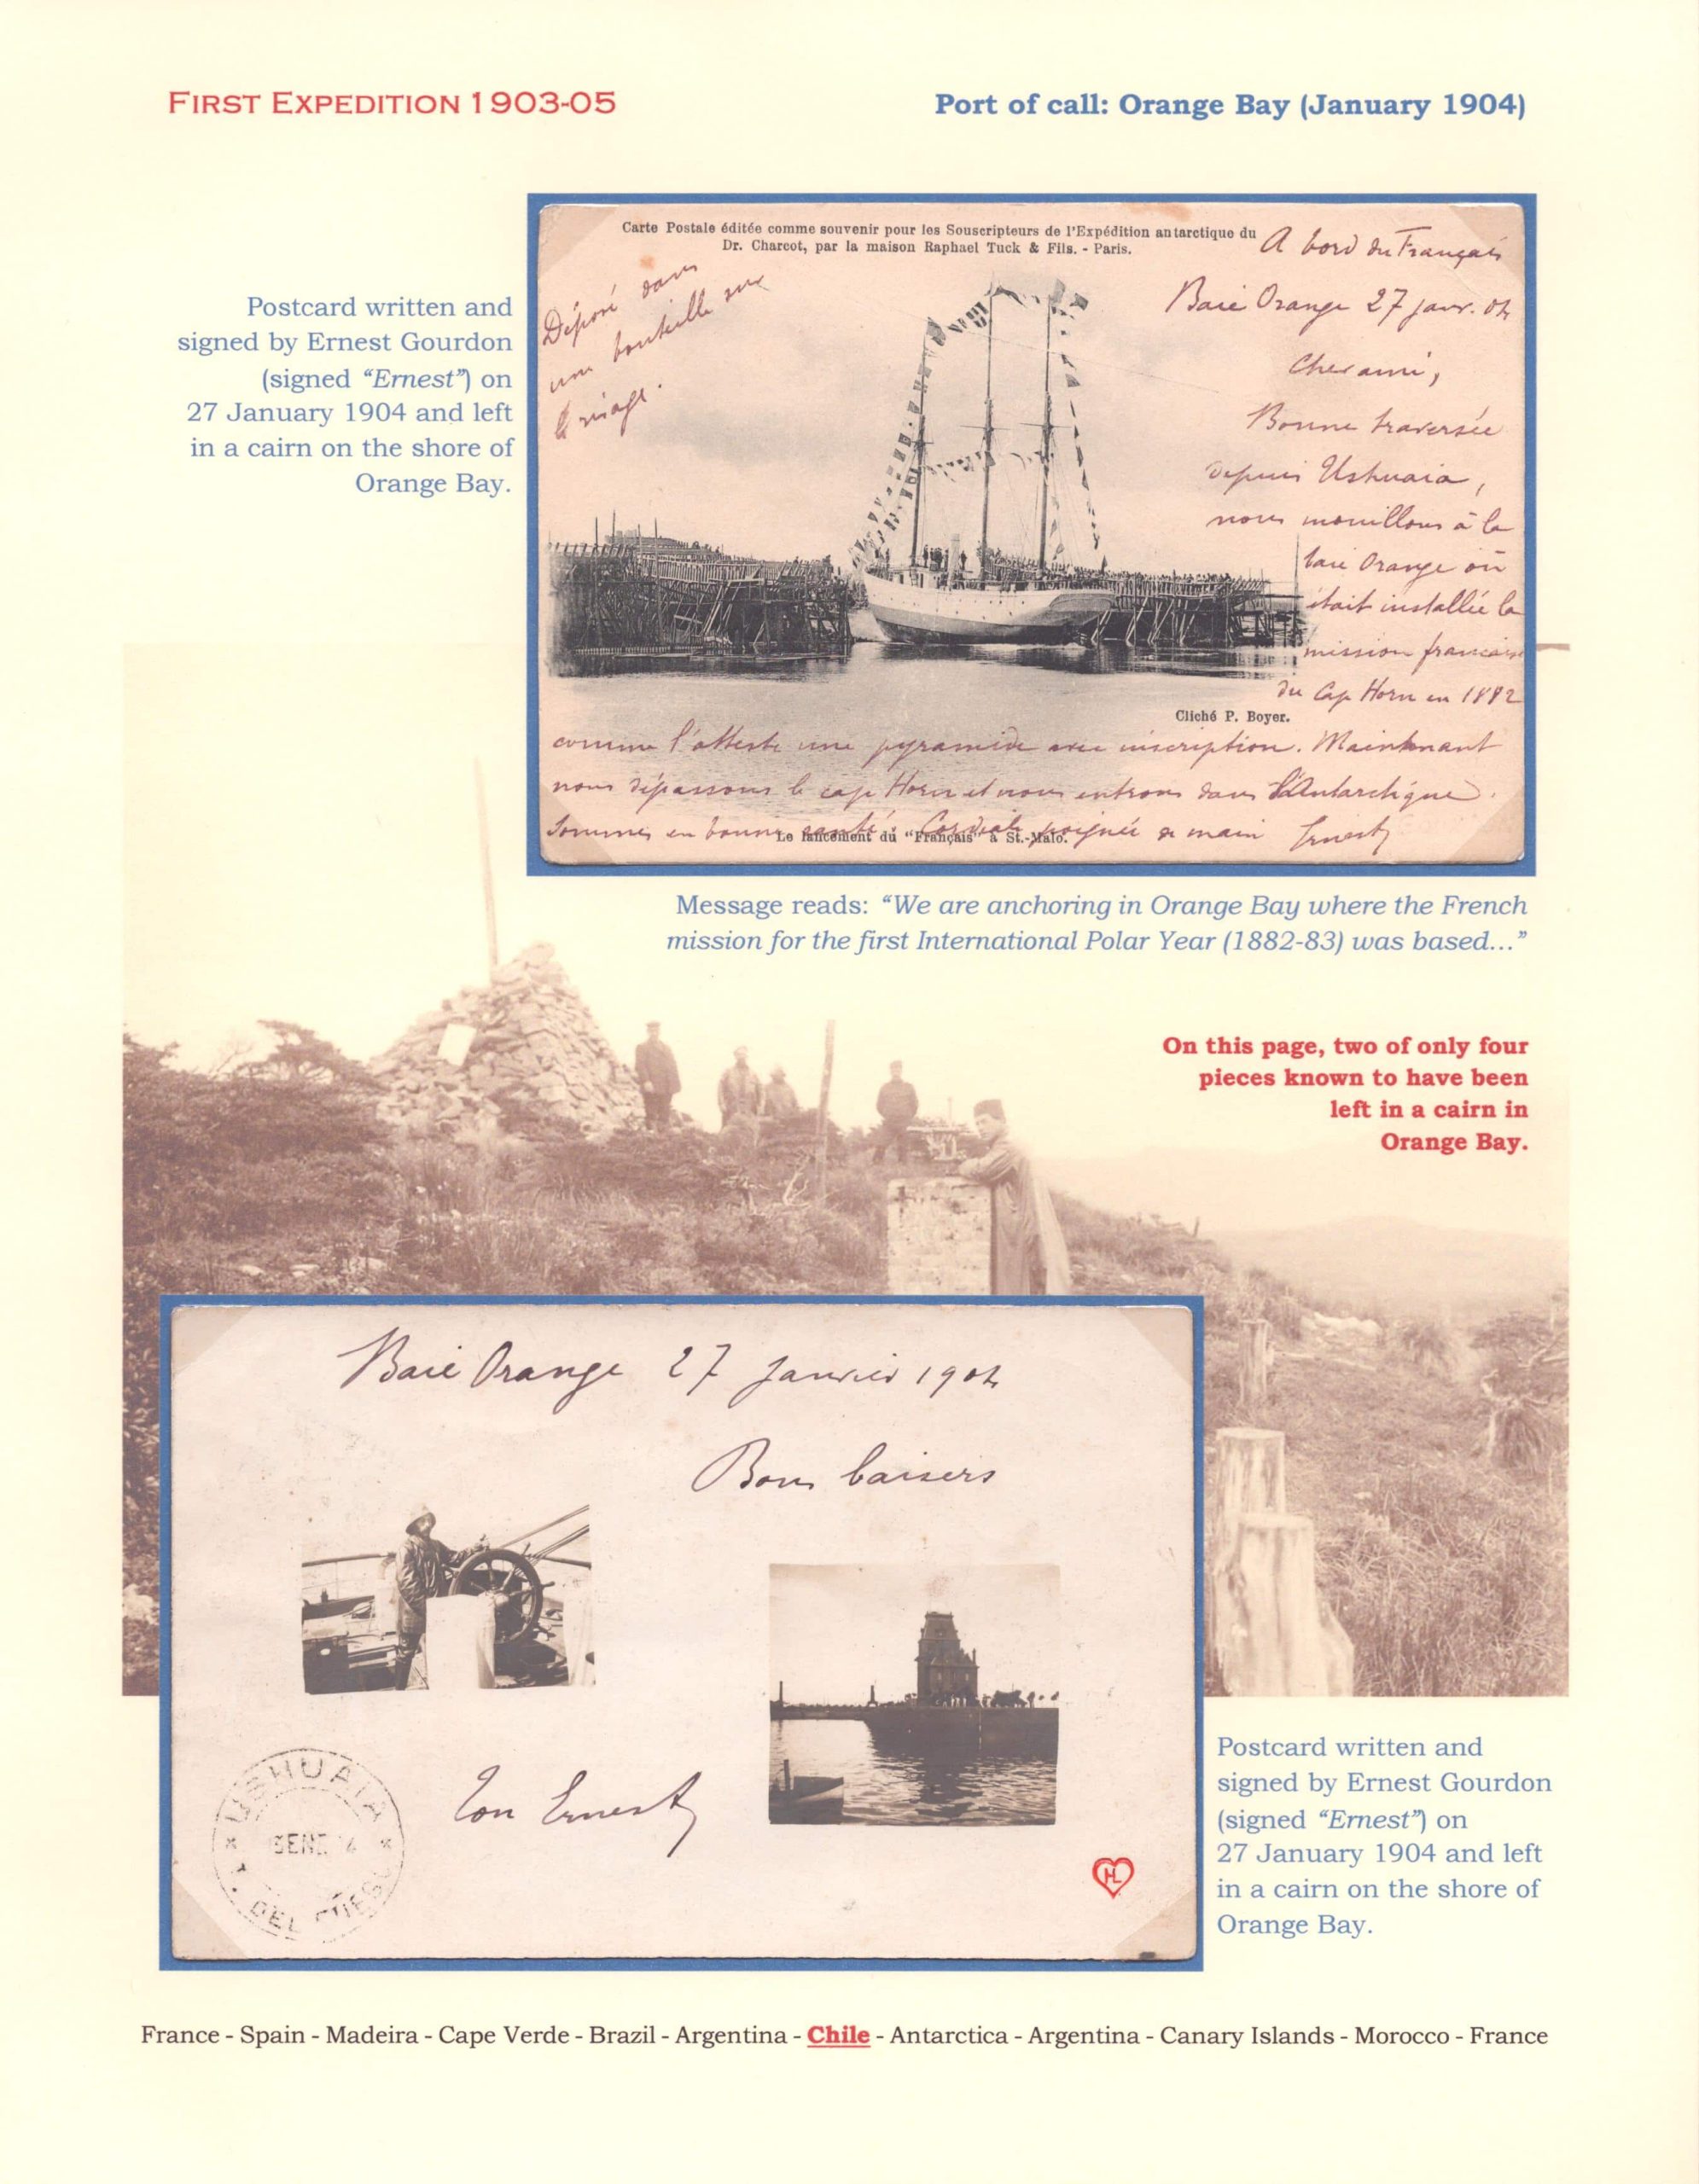 FIRST EXPEDITION 1903-05
Port of call: Orange Bay (January 1904)
Postcard written and
signed by Ernest Gourdon
(signed “Ernest”) on
27 January 1904 and left
in a cairn on the shore of
Orange Bay.
Carte Postale éditée comme souvenir pour les Souscripteurs de l'Expédition antarctique du
Dr. Charcot, par la maison Raphael Tuck & Fils. - Paris.
Déposé dans
une bouteille sur
le rivage.
A bord du Français
Baie Orange 27 janv. 04
Cher ami,
Bonne traversée
depuis Ushuaia,
nous mouillons à la
baie Orange où
était installée la
mission française
du Cap Horn en 1882
Cliché P. Boyer.
comme l'atteste une pyramide avec inscription. Maintenant
nous dépassons le cap Horn et nous entrons dans l'Antarctique.
Sommes en bonne santé. Cordiale poignée de main Ernest
Le lancement du “Français” à St.-Malo.
Message reads: “We are anchoring in Orange Bay where the French
mission for the first International Polar Year (1882-83) was based...”
On this page, two of only four
pieces known to have been
left in a cairn in
Orange Bay.
Baie Orange 27 Janvier 1904
Bons baisers
Ton Ernest
USHUAIA
T. DEL FUEGO
HL
Postcard written and
signed by Ernest Gourdon
(signed “Ernest”) on
27 January 1904 and left
in a cairn on the shore of
Orange Bay.
France - Spain - Madeira - Cape Verde - Brazil - Argentina - Chile - Antarctica - Argentina - Canary Islands - Morocco - France